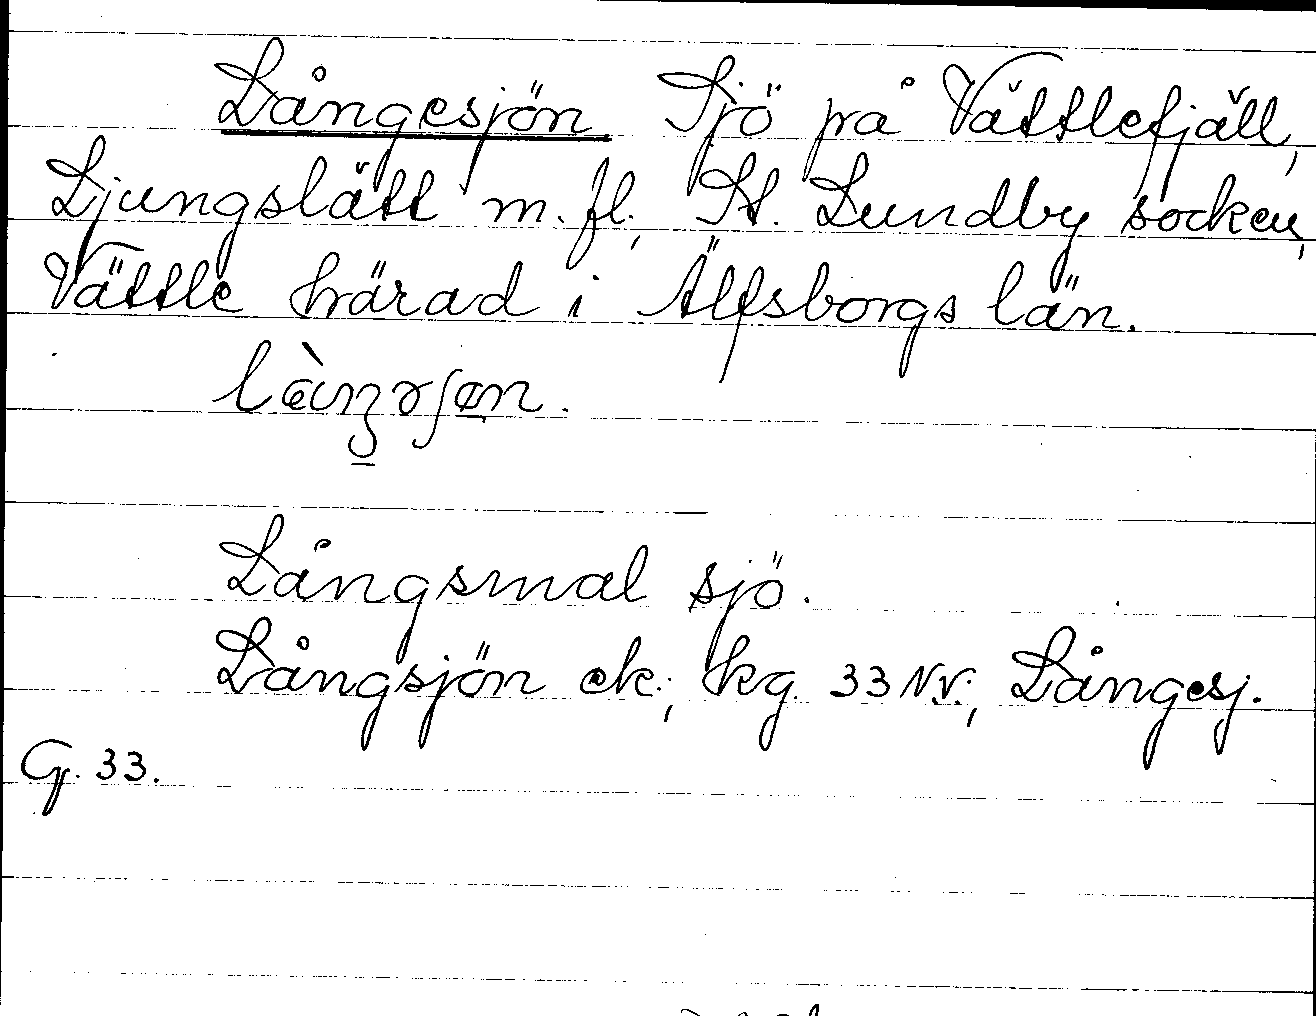 Långesjön Sjö på Vättlefjäll,
Ljungslätt m. fl., St. Lundby socken,
Vättle härad i Älfsborgs län.
Långsmal sjö.
Långsjön ek.; kg. 33 N.V.; Långesj.
G. 33.